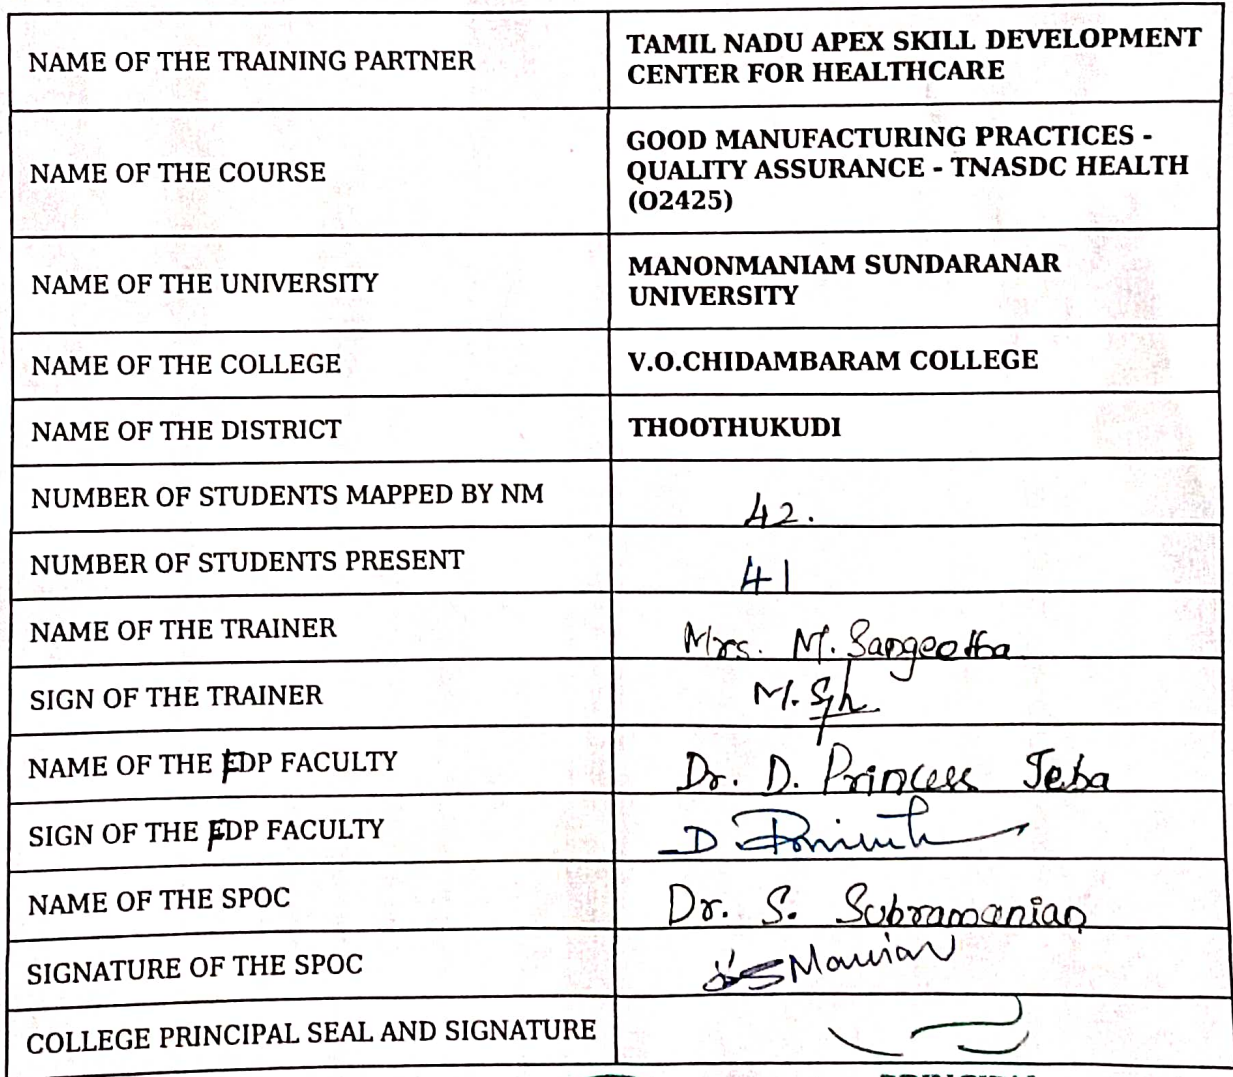 NAME OF THE TRAINING PARTNER
TAMIL NADU APEX SKILL DEVELOPMENT
CENTER FOR HEALTHCARE
NAME OF THE COURSE
GOOD MANUFACTURING PRACTICES -
QUALITY ASSURANCE - TNASDC HEALTH
(O2425)
NAME OF THE UNIVERSITY
MANONMANIAM SUNDARANAR
UNIVERSITY
NAME OF THE COLLEGE
V.O.CHIDAMBARAM COLLEGE
NAME OF THE DISTRICT
THOOTHUKUDI
NUMBER OF STUDENTS MAPPED BY NM
42.
NUMBER OF STUDENTS PRESENT
41
NAME OF THE TRAINER
Mrs. M. Sangeetha
SIGN OF THE TRAINER
NAME OF THE FDP FACULTY
Dr. D. Princess Jeba
SIGN OF THE FDP FACULTY
NAME OF THE SPOC
Dr. S. Subramanian
SIGNATURE OF THE SPOC
COLLEGE PRINCIPAL SEAL AND SIGNATURE
PRINCIPAL